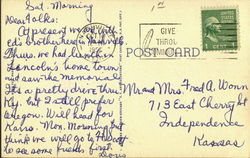 Sat. Morning
Dear folks:
At present we are with
Ed's brother here in
Thurs. we had lunch in
Lincoln's home town
and saw the memorial
Its a pretty drive thru
Ky. but I still prefer
Oregon. Will head for
Kans. Mon. Morning but
think we will go to
to see some friends first
Doris
1¢
GIVE
THRU
POST CARD
Mr and Mrs. Fred A. Wonn
713 East Cherry St
Independence
Kansas